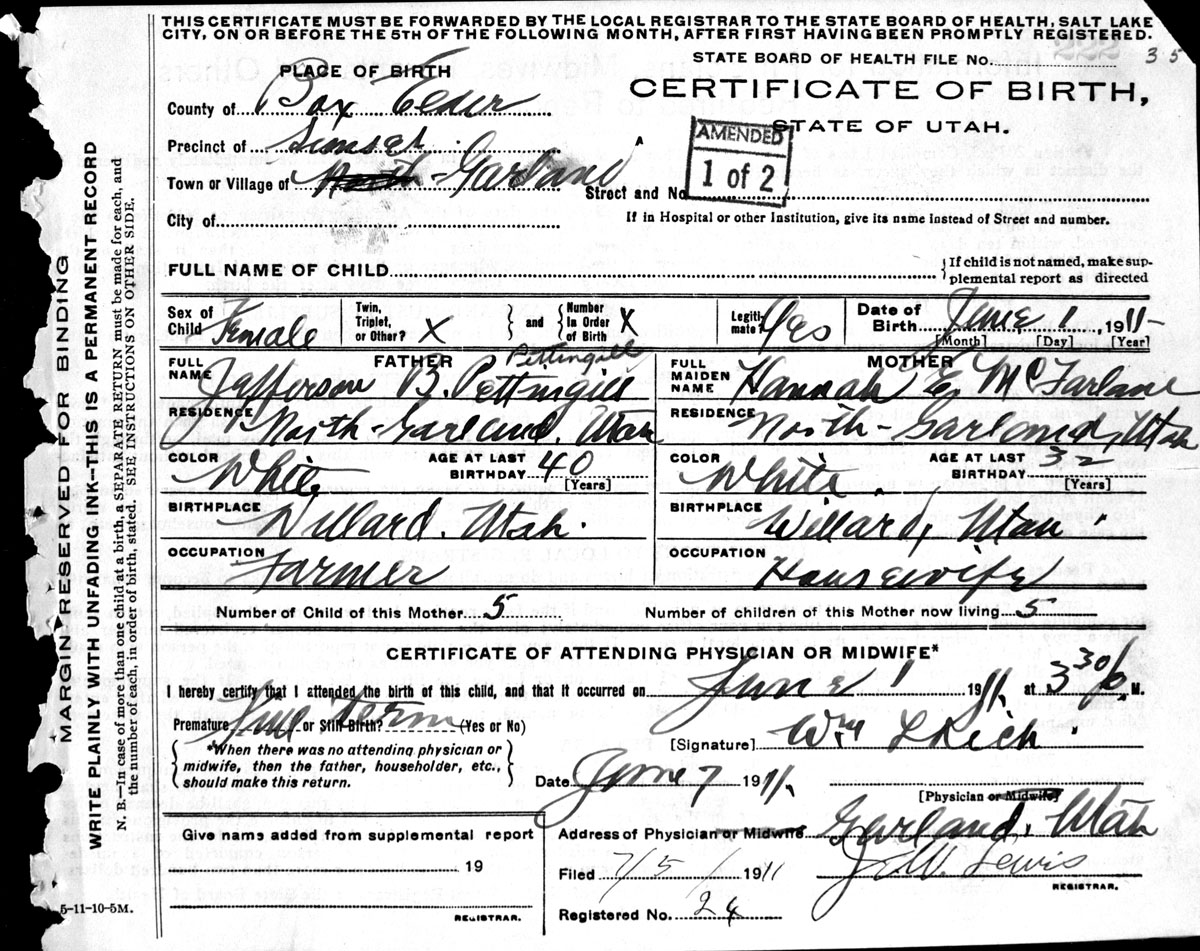 THIS CERTIFICATE MUST BE FORWARDED BY THE LOCAL REGISTRAR TO THE STATE BOARD OF HEALTH, SALT LAKE
CITY, ON OR BEFORE THE 5TH OF THE FOLLOWING MONTH, AFTER FIRST HAVING BEEN PROMPTLY REGISTERED.
STATE BOARD OF HEALTH FILE No. 35
PLACE OF BIRTH
CERTIFICATE OF BIRTH,
STATE OF UTAH.
County of Box Elder
AMENDED
1 of 2
Precinct of Sunset
Town or Village of North-Garland Street and No.
City of
If in Hospital or other Institution, give its name instead of Street and number.
FULL NAME OF CHILD
If child is not named, make sup-
plemental report as directed
Sex of Child Female Twin, Triplet, or Other? X and Number In Order of Birth X Legiti-mate? Yes Date of Birth June 1, 1911
[Month] [Day] [Year]
FATHER
Pettingill
FULL NAME Jafferson B. Pettingill
RESIDENCE North-Garland, Utah
COLOR White AGE AT LAST BIRTHDAY 40 [Years]
BIRTHPLACE Willard, Utah.
OCCUPATION Farmer
MOTHER
FULL MAIDEN NAME Hannah E. McFarlane
RESIDENCE North-Garland, Utah
COLOR White AGE AT LAST BIRTHDAY 32 [Years]
BIRTHPLACE Willard, Utah.
OCCUPATION Housewife
Number of Child of this Mother 5 Number of children of this Mother now living 5
CERTIFICATE OF ATTENDING PHYSICIAN OR MIDWIFE*
I hereby certify that I attended the birth of this child, and that it occurred on June 1 1911, at 3 30 P. M.
Premature or Still Birth? (Yes or No)
Full term
[Signature] Wm L Rich
*When there was no attending physician or
midwife, then the father, householder, etc.,
should make this return.
Date June 7 1911.
[Physician or Midwife]
Give name added from supplemental report
19
REGISTRAR.
Address of Physician or Midwife Garland, Utah
Filed 7/5/ 1911 J. W. Lewis
REGISTRAR.
Registered No. 24
MARGIN RESERVED FOR BINDING
WRITE PLAINLY WITH UNFADING INK—THIS IS A PERMANENT RECORD
N. B.—In case of more than one child at a birth, a SEPARATE RETURN must be made for each, and
the number of each, in order of birth, stated. SEE INSTRUCTIONS ON OTHER SIDE.
5-11-10-5M.